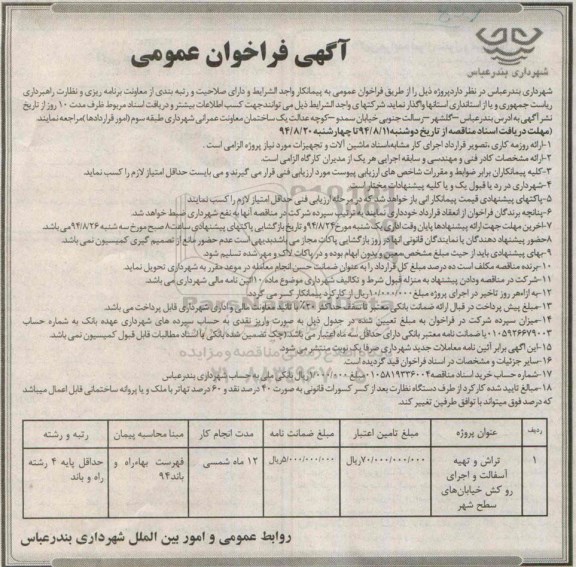 آگهی فراخوان عمومی
شهرداری بندرعباس
شهرداری بندرعباس در نظر دارد پروژه ذیل را از طریق فراخوان عمومی به پیمانکار واجد الشرایط و دارای صلاحیت و رتبه بندی از معاونت برنامه ریزی و نظارت راهبردی
ریاست جمهوری و یا از استانداری استانها واگذار نماید. شرکتهای واجد الشرایط ذیل می توانند جهت کسب اطلاعات بیشتر و دریافت اسناد مربوط ظرف مدت ۱۰ روز از تاریخ
نشر آگهی به آدرس بندرعباس - گلشهر - رسالت جنوبی خیابان سمدو - کوچه عدالت یک ساختمان معاونت عمرانی شهرداری طبقه سوم (امور قراردادها) مراجعه نمایند.
(مهلت دریافت اسناد مناقصه از تاریخ دوشنبه ۹۴/۸/۱۱ تا چهارشنبه ۹۴/۸/۲۰)
۱-ارائه رزومه کاری، تصویر قرارداد اجرای کار مشابه، اسناد ماشین آلات و تجهیزات مورد نیاز پروژه الزامی است.
۲-ارائه مشخصات کادر فنی و مهندسی و سابقه اجرایی هر یک از مدیران کارگاه الزامی است.
۳-کلیه پیمانکاران برابر ضوابط و مقررات شاخص های ارزیابی کلیه پیوست مورد ارزیابی فنی قرار می گیرند و می بایست حداقل امتیاز لازم را کسب نماید.
۴-شهرداری در رد یا قبول یک و یا کلیه پیشنهادات مختار است.
۵-پاکتهای پیشنهادی قیمت پیمانکار انی باز خواهد شد که در مرحله ارزیابی فنی حداقل امتیاز لازم را کسب نمایند
۶-چنانچه برندگان فراخوان از انعقاد قرارداد خودداری نمایند به ترتیب سپرده شرکت در مناقصه آنها به نفع شهرداری ضبط خواهد شد.
۷-آخرین مهلت جهت ارائه پیشنهادها پایان وقت اداری یک شنبه مورخ ۹۴/۸/۲۴ و تاریخ بازگشایی پاکتهای پیشنهادی ساعت ۸ صبح مورخ سه شنبه ۹۴/۸/۲۶ می باشد.
۸-حضور پیشنهاد دهندگان یا نمایندگان قانونی آنها در روز بازگشایی پاکات مجاز می باشد بدیهی است عدم حضور مانع از تصمیم گیری کمیسیون نمی باشد.
۹-بهای پیشنهادی باید از حیث مبلغ مشخص، معین و بدون ابهام بوده و در پاکات لاک و مهر شده تسلیم شود.
۱۰-برنده مناقصه مکلف است ده درصد مبلغ کل قرارداد را به عنوان ضمانت حسن انجام معامله در موعد مقرر به شهرداری تحویل نماید.
۱۱-شرکت در مناقصه و دادن پیشنهاد به منزله قبول شرط و تکالیف شهرداری موضوع ماده ۱۰ آئین نامه مالی شهرداری می باشد.
۱۲-به ازاء هر روز تاخیر در اجرای پروژه مبلغ ۱۰/۰۰۰/۰۰۰ ریال از کارکرد پیمانکار کسر می گردد.
۱۳-مبلغ پیش پرداخت در قبال ارائه ضمانت بانکی معتبر تا سقف حداکثر ۲۰٪ با تائید معاونت مالی و اداری شهرداری قابل پرداخت می باشد.
۱۴-میزان سپرده شرکت در فراخوان به مبلغ تعیین شده در جدول ذیل به صورت واریز نقدی به حساب سپرده های شهرداری عهده بانک به شماره حساب
یا ضمانت نامه معتبر بانکی دارای حداقل سه ماه اعتبار می باشد (چک تضمین شده بانکی یا اسناد مطالبات قابل قبول کمیسیون نمی باشد.
۱۵-این آگهی برابر آئین نامه معاملات جدید شهرداری صرفا یک نوبت منتشر می شود.
۱۶-سایر جزئیات و مشخصات در اسناد فراخوان قید گردیده است.
۱۷-شماره حساب خرید اسناد مناقصه ۰۱۰۵۸۱۹۳۳۶۰۰۴ بانک ملی به حساب شهرداری بندرعباس
۱۸-مبالغ تایید شده کارکرد از طرف دستگاه نظارت بعد از کسر کسورات قانونی به صورت ۴۰ درصد نقد و ۶۰ درصد تهاتر با ملک و یا پروانه ساختمانی قابل اعمال میباشد
که درصد فوق میتواند با توافق طرفین تغییر کند.
ردیف عنوان پروژه مبلغ تامین اعتبار مبلغ ضمانت نامه مدت انجام کار مبنا محاسبه پیمان رتبه و رشته
۱ تراش و تهیه آسفالت و اجرای رو کش خیابان‌های سطح شهر ۷۰/۰۰۰/۰۰۰/۰۰۰ ریال ۵/۰۰۰/۰۰۰/۰۰۰ ریال ۱۲ ماه شمسی فهرست بهاء راه و باند ۹۴ حداقل پایه ۴ رشته راه و باند
روابط عمومی و امور بین الملل شهرداری بندرعباس